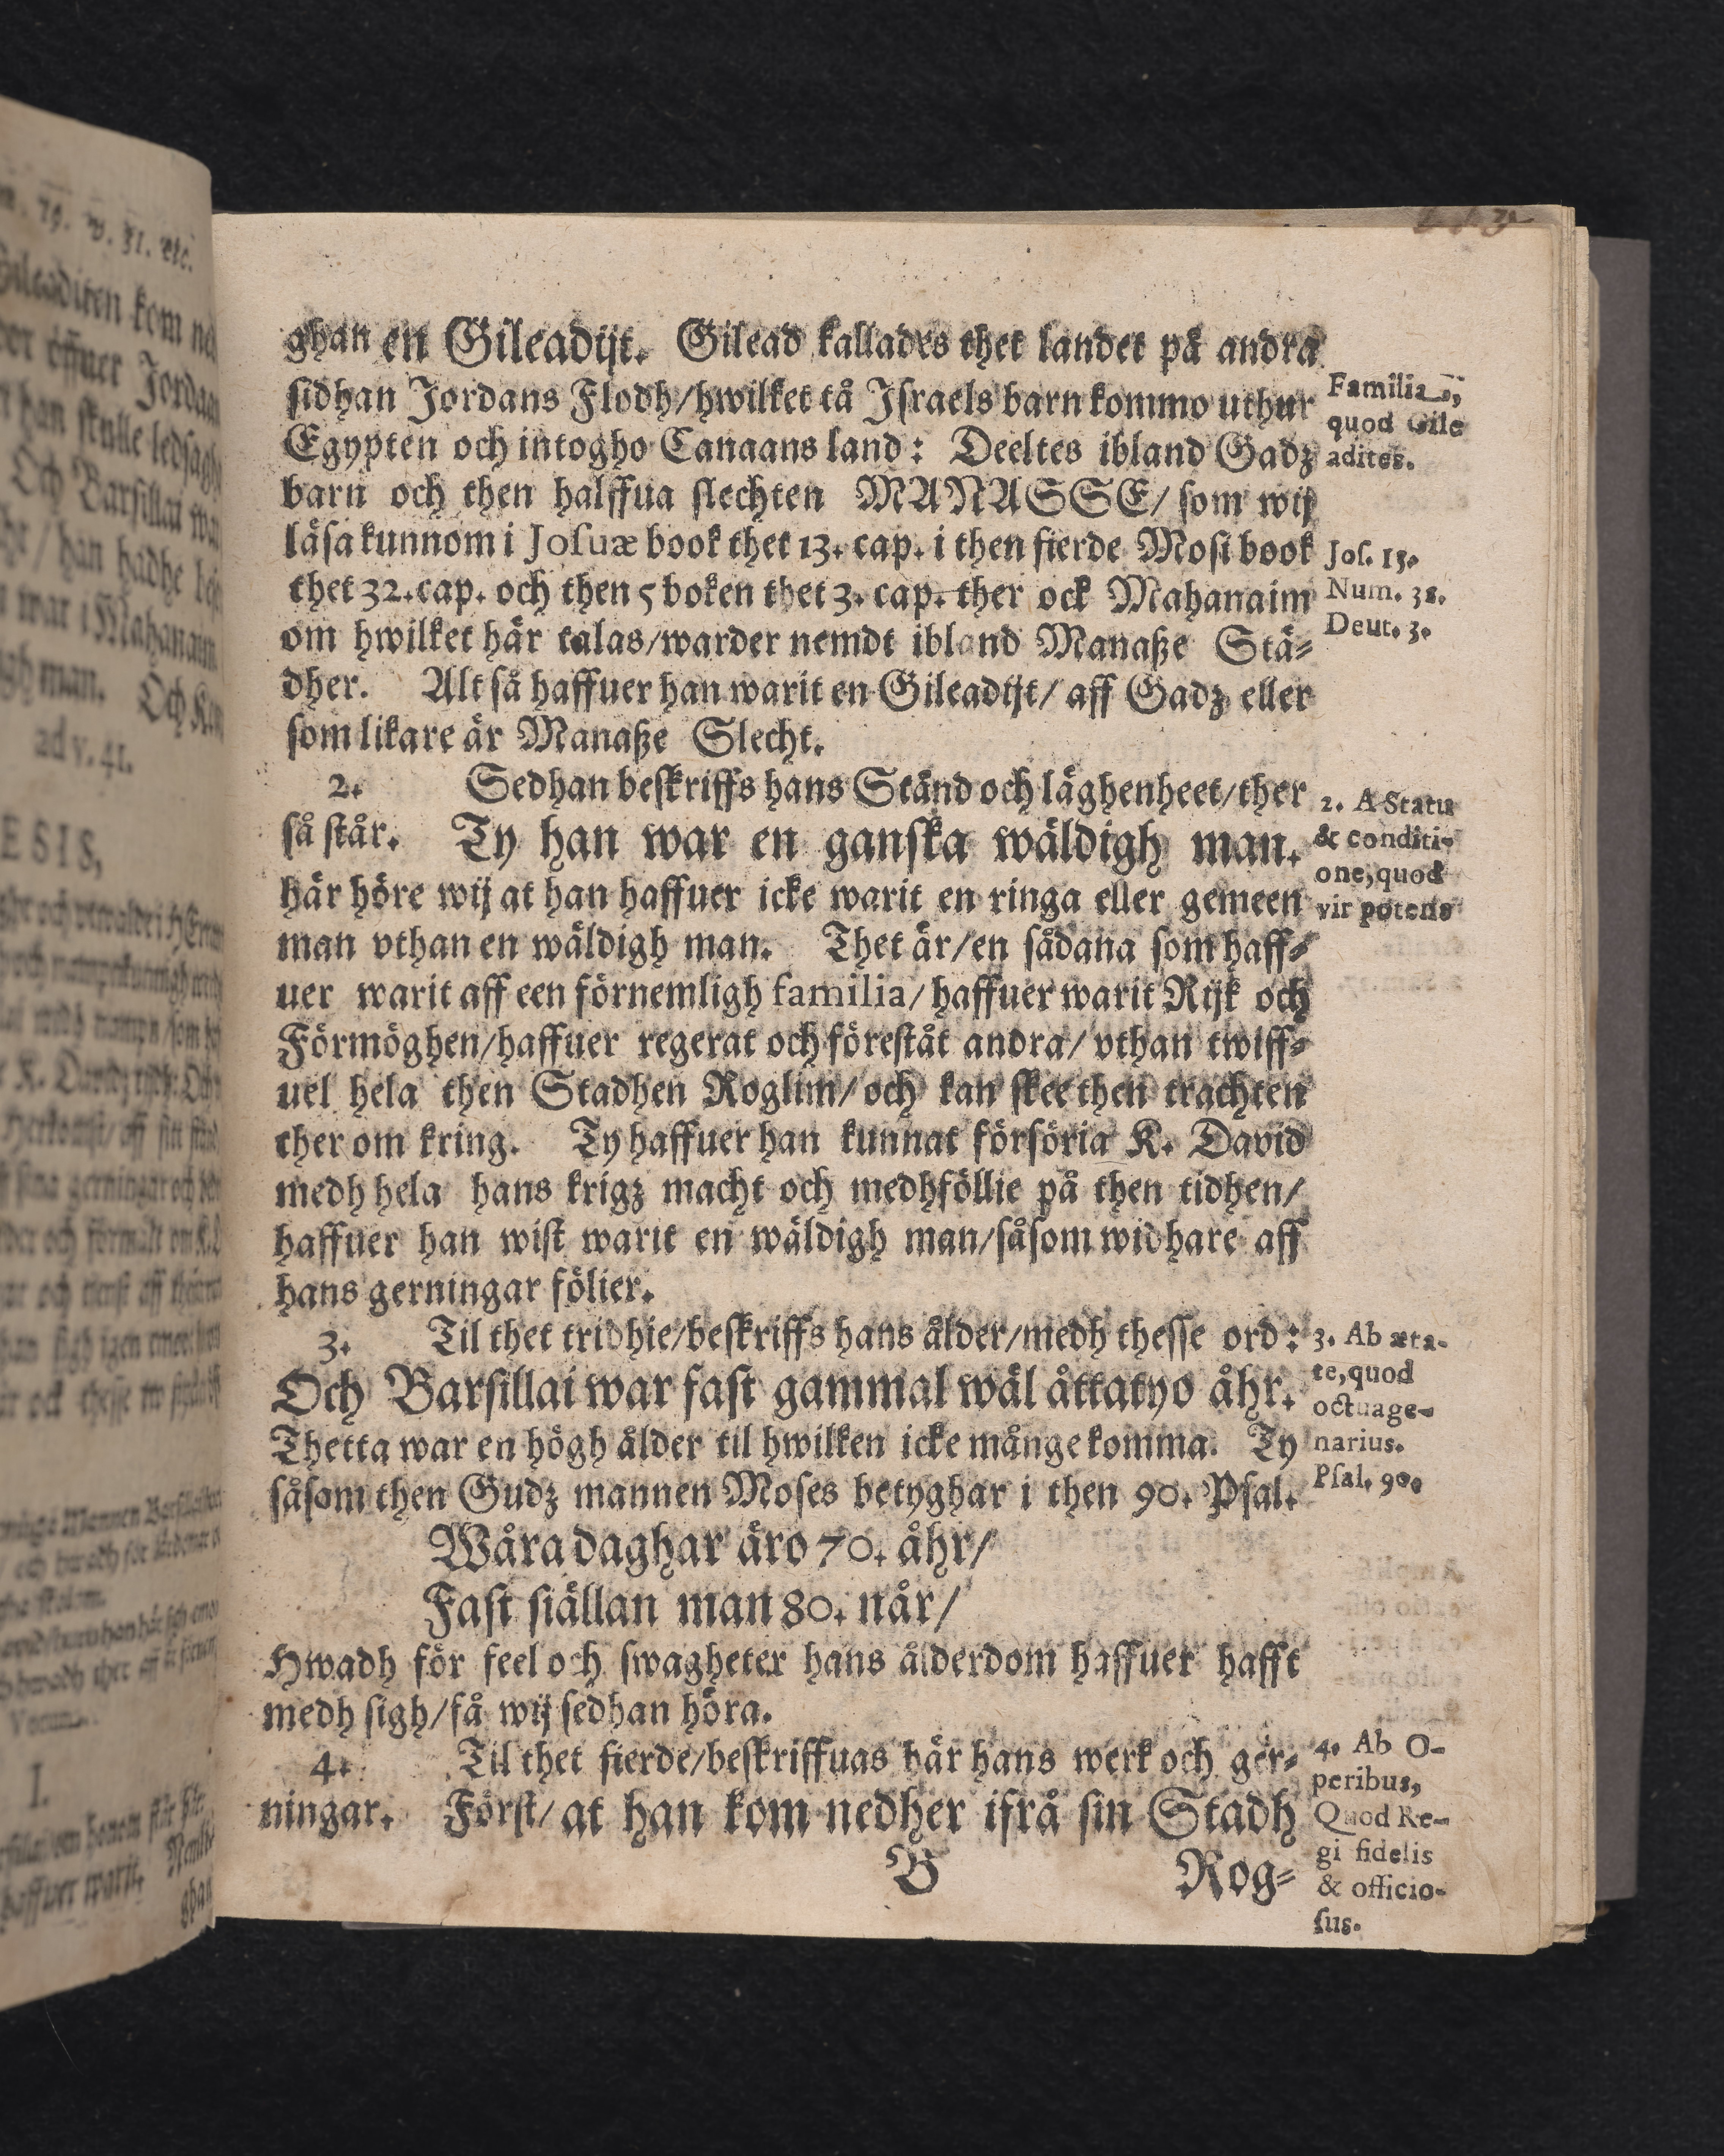 ghan en Gileadijt. Gilead kallades thet landet på andra
sidhan Jordans Flodh/hwilket tå Israels barn kommo uthur
Egypten och intogho Canaans land: Deeltes ibland Gadz
barn och then halffua slechten MANASSE/ som wij
läsa kunnom i Josuæ book thet 13. cap. i then fierde Mosi book
thet 32. cap. och then 5 boken thet 3. cap. ther ock Mahanaim
om hwilket här talas/warder nemdt ibland Manaße Stä-
dher. Alt så haffuer han warit en Gileadijt/ aff Gadz eller
som likare är Manaße Slecht.
Familia,
quod Gile
adites.
Jos. 13.
Num. 32.
Deut. 3.
2. Sedhan beskriffs hans Ständ och läghenheet/ther
så står. Ty han war en ganska wäldigh man.
här höre wij at han haffuer icke warit en ringa eller gemeen
man vthan en wäldigh man. Thet är/en sådana som haff-
uer warit aff een förnemligh familia/ haffuer warit Rijk och
Förmöghen/haffuer regerat och förestått andra/ vthan twiff-
uel hela then Stadhen Roglim/ och kan skee then trachten
ther om kring. Ty haffuer han kunnat försöria K. David
medh hela hans krigz macht och medhföllie på then tidhen/
haffuer han wist warit en wäldigh man/såsom widhare aff
hans gerningar fölier.
2. A Statu
& conditi-
one, quod
vir potens
3. Til thet tridhie/beskriffs hans ålder/medh thesse ord:
Och Barsillai war fast gammal wäl åttatyo åhr.
Thetta war en högh ålder til hwilken icke månge komma. Ty
såsom then Gudz mannen Moses betyghar i then 90. Psal.
Wåra daghar äro 70. åhr/
Fast siällan man 80. når/
Hwadh för feel och swagheter hans ålderdom haffuer hafft
medh sigh/få wij sedhan höra.
3. Ab æta-
te, quod
octuage-
narius.
Psal. 90.
4. Til thet fierde/beskriffuas här hans werk och ger-
ningar. Först/ at han kom nedher ifrå sin Stadh
4. Ab O-
peribus,
Quod Re-
gi fidelis
& officio-
sus.
B Rog-